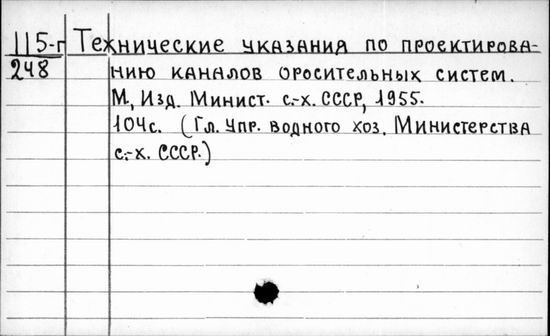 115-г Технические указания по проектирова-
248 нию каналов оросительных систем.
М, Изд. Минист. с.-х. СССР, 1955.
104с. (Гл. Упр. водного хоз. Министерства
с.-х. СССР.)